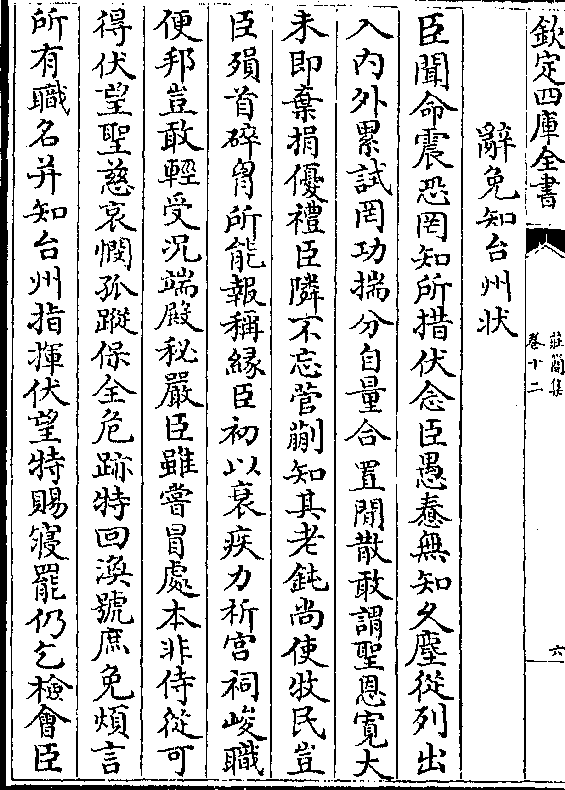 欽定四庫全書
莊簡集
卷十二
六
辭免知台州状
臣聞命震恐罔知所措伏念臣愚惷無知久塵從列出
入内外累試罔功揣分自量合置閒散敢謂聖恩寛大
未即棄捐優禮臣隣不忘菅蒯知其老鈍尚使牧民豈
臣殞首碎胷所能報稱縁臣初以衰疾力祈宫祠峻職
便邦豈敢輕受况端殿秘嚴臣雖嘗冒處本非侍從可
得伏望聖慈哀憫孤蹤保全危跡特回渙號庶免煩言
所有職名并知台州指揮伏望特賜寝罷仍乞檢會臣